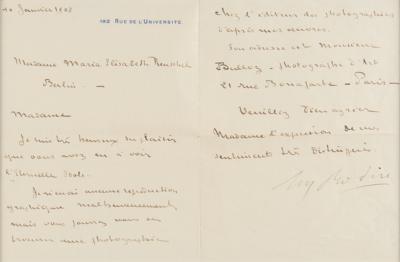 10 Janvier 1908
182 RUE DE L'UNIVERSITÉ
Madame Maria Elisabeth
Berlin. —
Madame
Je suis très heureux du plaisir
que vous avez eu à voir
l'Eternelle Idole.
Je n'ai aucune reproduction
graphique malheureusement
mais vous pouvez vous en
trouver une photographie
chez l'éditeur des photographies
d'après mes œuvres.
Son adresse est Monsieur
Bulloz - photographe d'Art
21 rue Bonaparte - Paris -
Veuillez agréer
Madame l'expression de mes
sentiments très distingués.
Aug Rodin